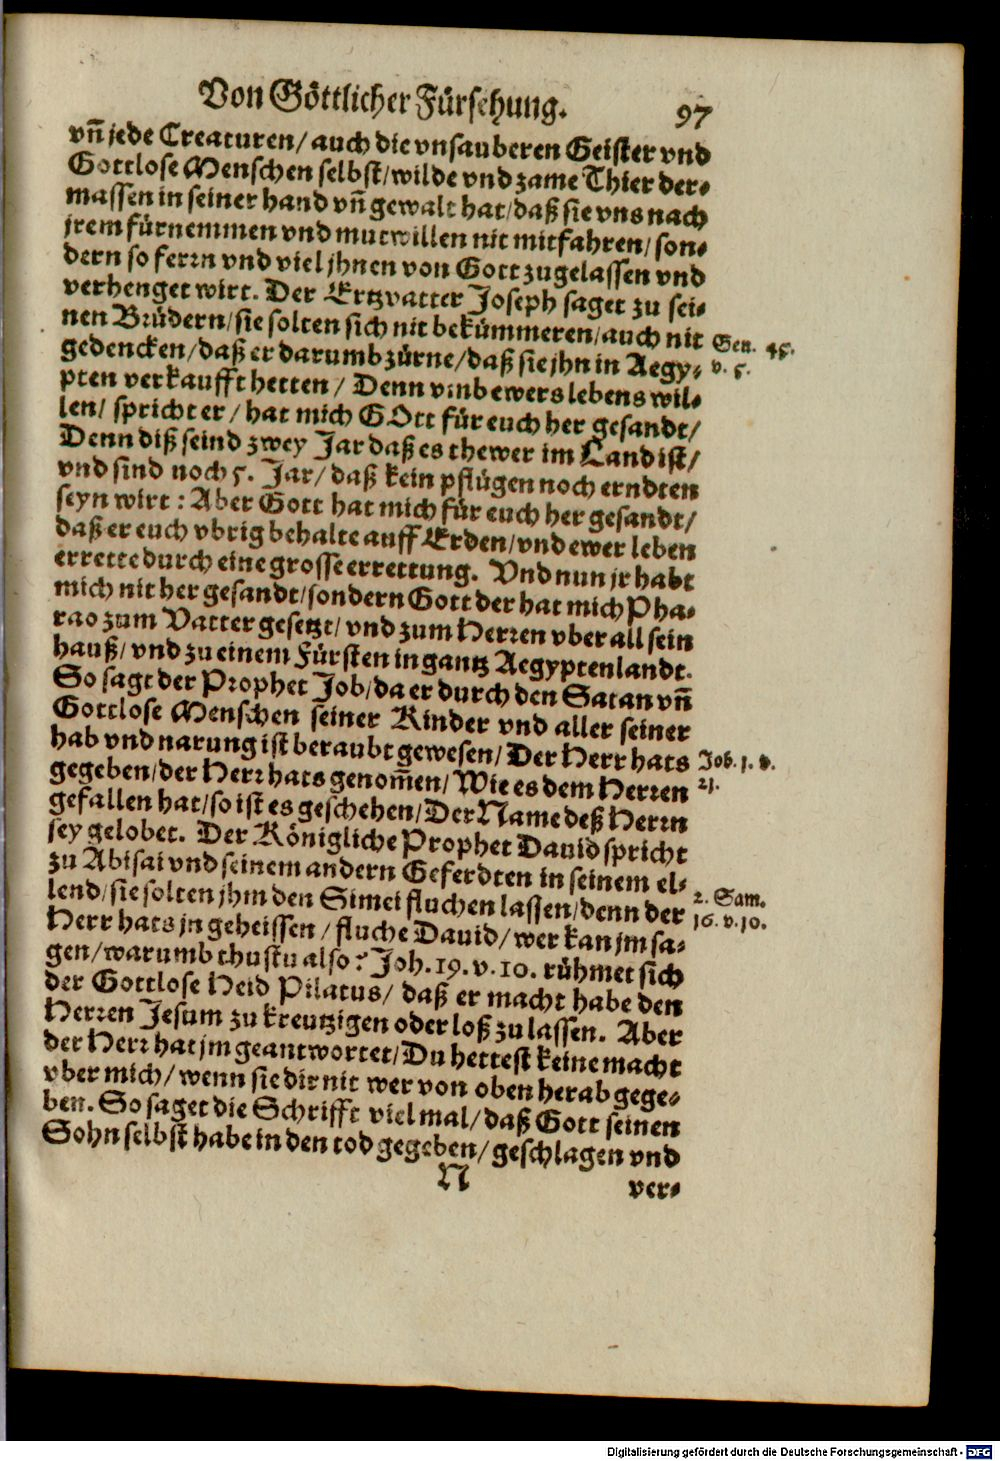 Von Göttlicher Fürsehung. 97
vñ jede Creaturen/ auch die vnsauberen Geister vnd
Gottlose Menschen selbst/ wilde vnd zame Thier der⸗
massen in seiner hand vñ gewalt hat/ daß sie vns nach
jrem fürnemmen vnd mutwillen nit mitfahren/ son⸗
dern so ferrn vnd viel jhnen von Gott zugelassen vnd
verhenget wirt. Der Ertzvatter Joseph saget zu sei⸗
nen Brüdern/ sie solten sich nit bekümmeren/ auch nit
Gen. 45.
gedencken/ daß er darumb zürne/ daß sie jhn in Aegy⸗
v. 5.
pten verkaufft hetten/ Denn vmb ewers lebens wil⸗
len/ spricht er/ hat mich GOtt für euch her gesandt/
Denn diß seind zwey Jar daß es thewer im Land ist/
vnd sind noch 5. Jar/ daß kein pflügen noch erndten
seyn wirt: Aber Gott hat mich für euch her gesandt/
daß er euch vbrig behalte auff Erden/ vnd ewer leben
errette durch eine grosse errettung. Vnd nun jr habt
mich nit her gesandt/ sondern Gott der hat mich Pha⸗
rao zum Vatter gesetzt/ vnd zum Herren vber all sein
hauß/ vnd zu einem Fürsten in gantz Aegyptenlandt.
So sagt der Prophet Job/ da er durch den Satan vñ
Gottlose Menschen seiner Kinder vnd aller seiner
hab vnd narung ist beraubt gewesen/ Der Herr hats
Job. 1. v.
gegeben/ der Herr hats genom̃en/ Wie es dem Herren
21.
gefallen hat/ so ist es geschehen/ Der Name deß Herrn
sey gelobet. Der Königliche Prophet Dauid spricht
zu Abisai vnd seinem andern Geferdten in seinem el⸗
lend/ sie solten jhm den Simei fluchen lassen/ denn der
2. Sam.
Herr hats jn geheissen/ fluche Dauid/ wer kan jm sa⸗
16. v. 10.
gen/ warumb thustu also? Joh. 19. v. 10. rühmet sich
der Gottlose Heid Pilatus/ daß er macht habe den
Herren Jesum zu kreutzigen oder loß zu lassen. Aber
der Herr hat jm geantwortet/ Du hettest keine macht
vber mich/ wenn sie dir nit wer von oben herab gege⸗
ben. So saget die Schrifft viel mal/ daß Gott seinen
Sohn selbst habe in den tod gegeben/ geschlagen vnd
N ver⸗
Digitalisierung gefördert durch die Deutsche Forschungsgemeinschaft - DFG